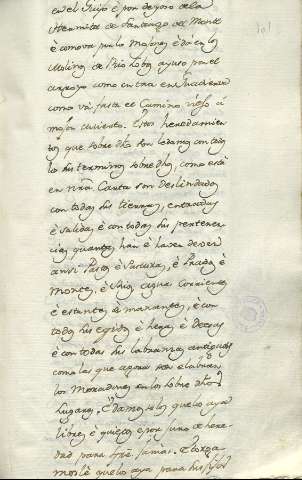 en el Quijo è por deyoso de la
Hermita de Santiago de Monte
è como va por los Mojones è dà en los
Molinos de Rio Lobos ayuso por el
arroyo como entra en
como và fasta el Camino viejo à
mojon cuvierto. Estos heredamien-
tos que sobredhos son ledamos con todos
los sus terminos sobredhos, como està
en nrã Carta son Deslindados
con todas sus tierras, entradas
è salidas è con todas sus pertenen-
cias quantas han è haver deven
ansi Pasos, è Pastura, è Prados è
montes, è Rios, aguas Corrientes
è estantes, è manantes, è con
todos sus egidos, è legos, è Deesas
è con todas sus labranzas antiguas
como las que agora han è labran
los Moradores en los sobredhos
Lugares, è damoselos que los aya
libres, è quitos por juro de here-
dad para spre jamàs. E otorga-
moslè que los aya para sus fijos
101